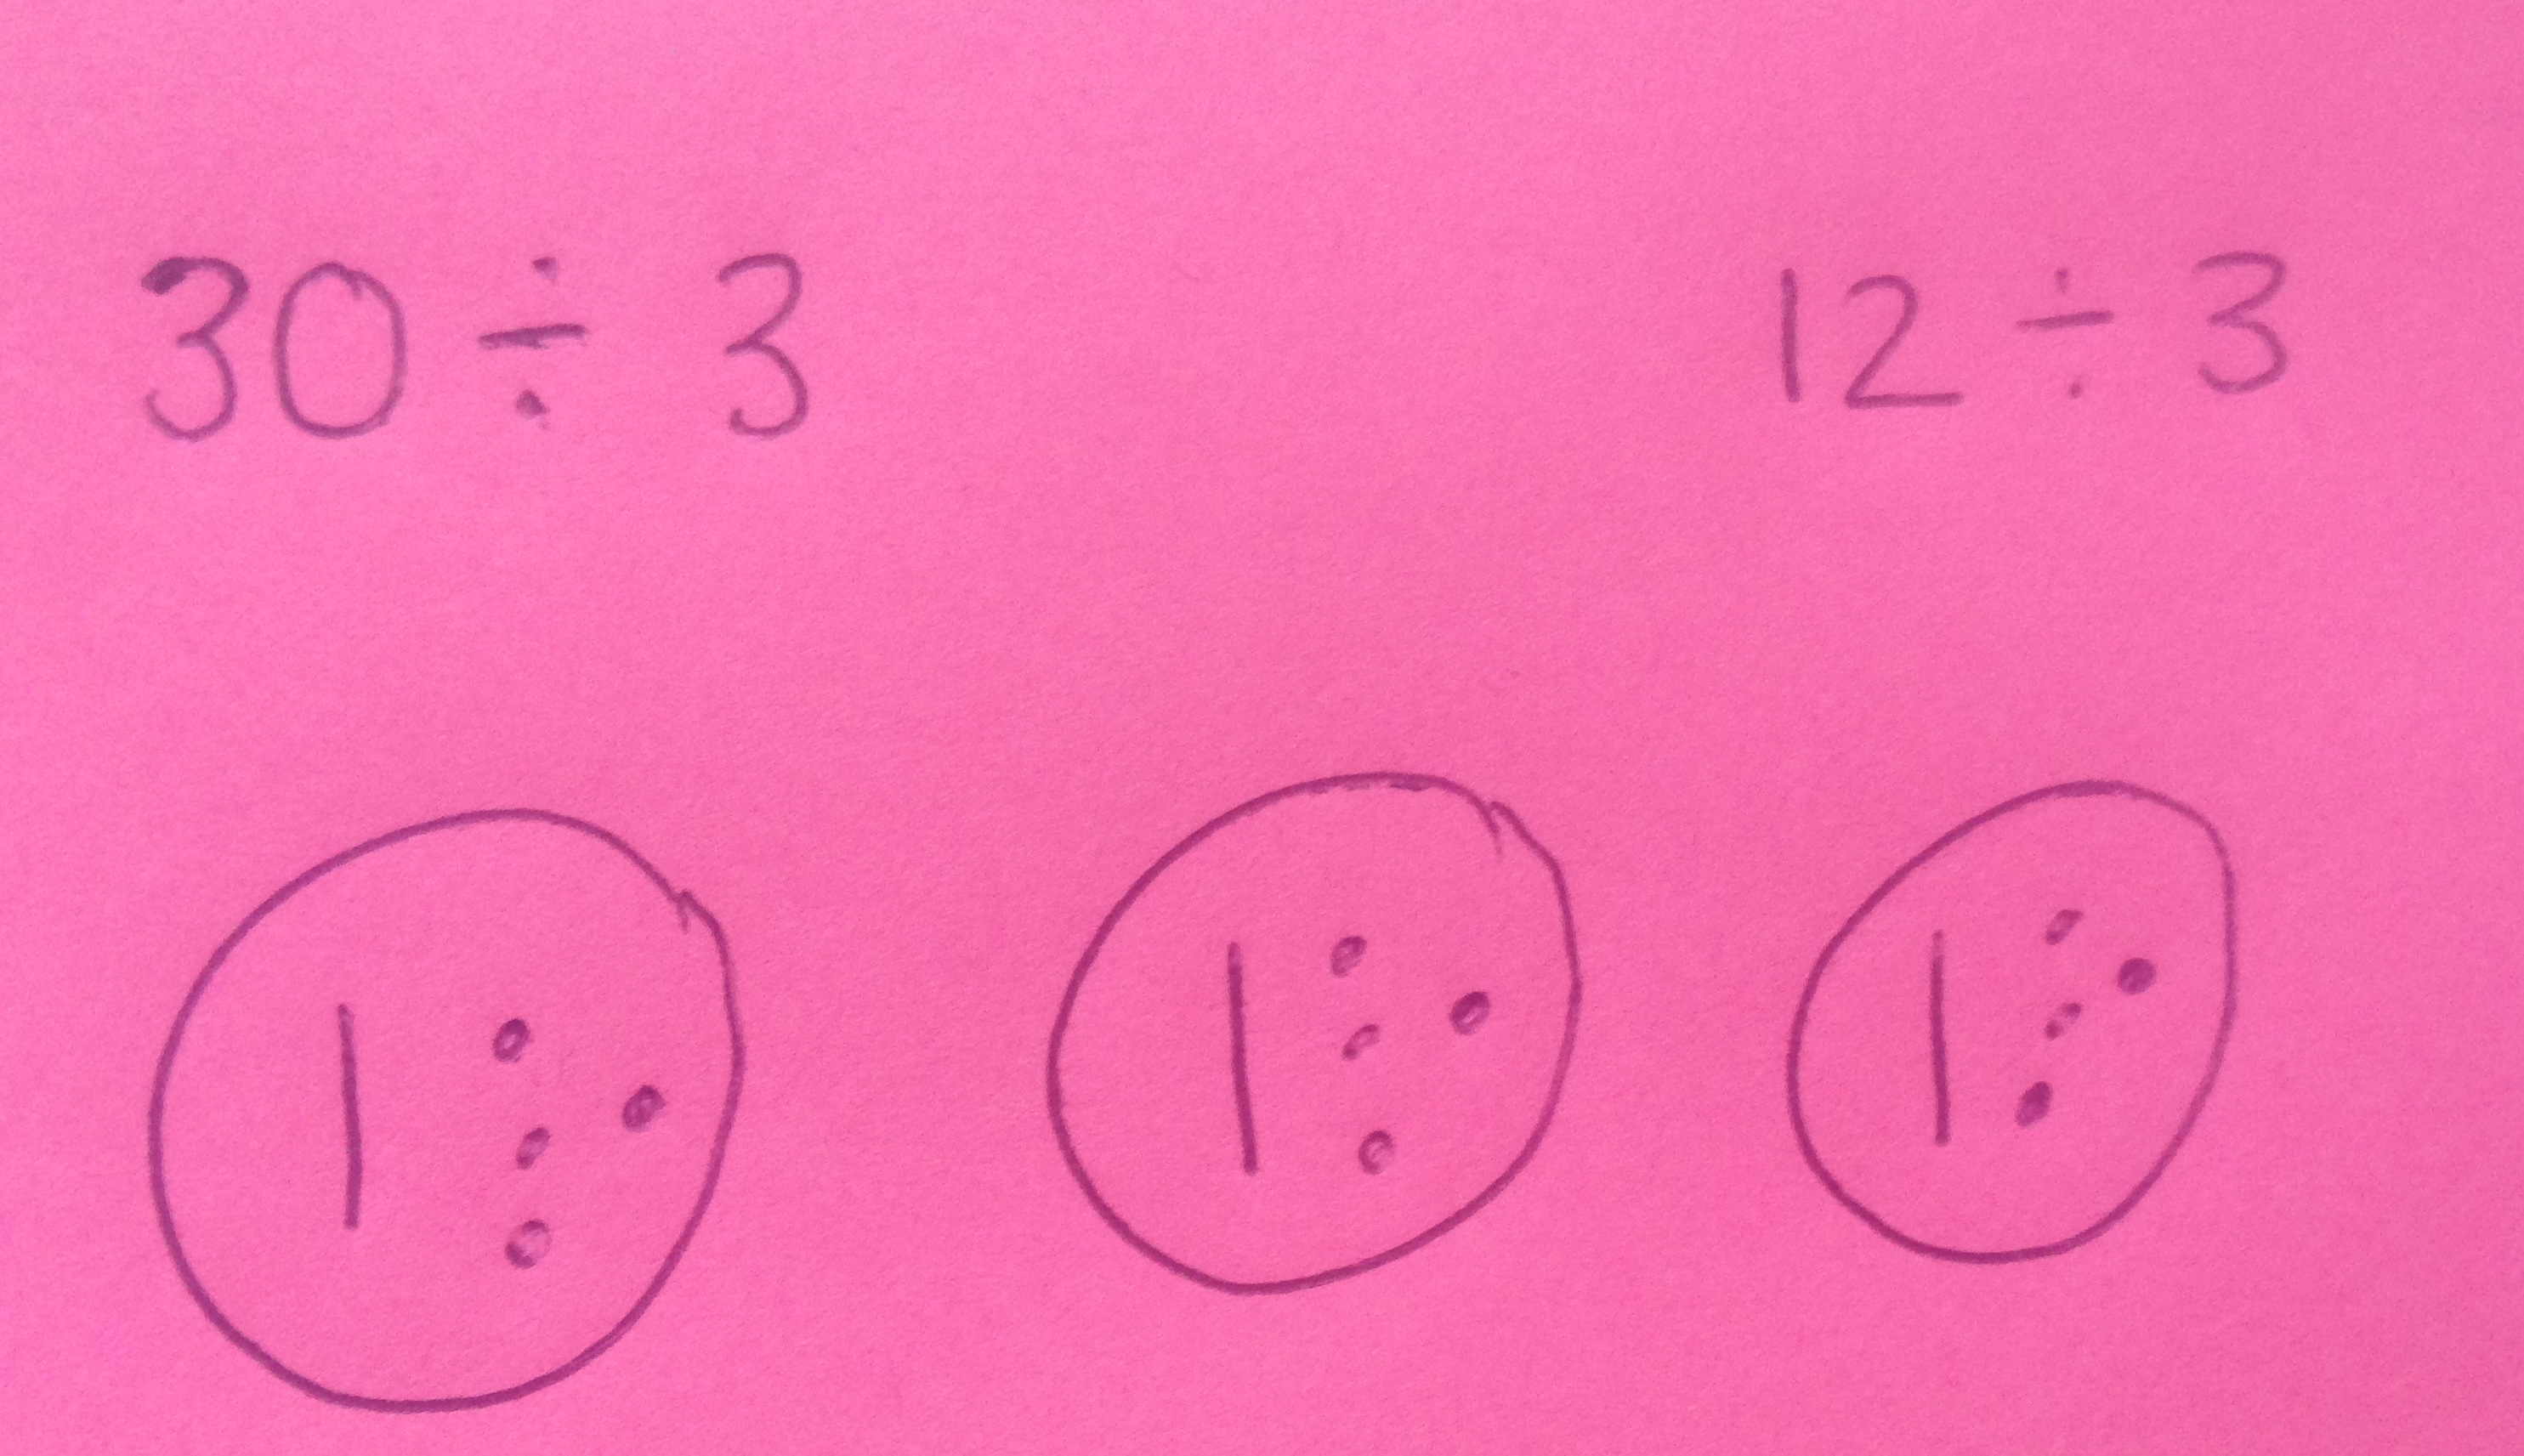 30 ÷ 3 12 ÷ 3